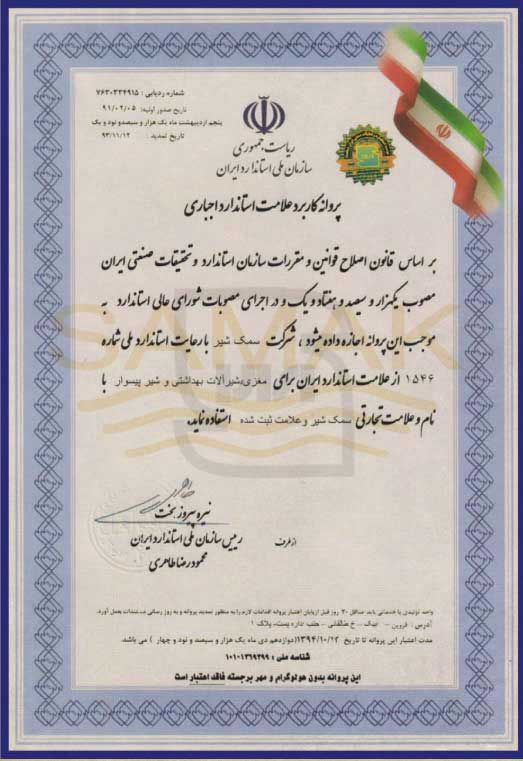 شماره ردیابی : ۷۶۳۰۳۳۴۹۱۵
تاریخ صدور اولیه: ۹۱/۰۲/۰۵
پنجم اردیبهشت ماه یک هزار و سیصدو نود و یک
تاریخ تمدید : ۹۳/۱۱/۱۲
ریاست جمهوری
سازمان ملی استاندارد ایران
پروانه کاربرد علامت استاندارد اجباری
بر اساس قانون اصلاح قوانین و مقررات سازمان استاندارد و تحقیقات صنعتی ایران
مصوب یکهزار و سیصد و هفتاد و یک و در اجرای مصوبات شورای عالی استاندارد به
موجب این پروانه اجازه داده میشود ، شرکت سمک شیر با رعایت استاندارد ملی شماره
۱۵۴۶ از علامت استاندارد ایران برای مغزی شیرآلات بهداشتی و شیر پیسوار با
نام و علامت تجارتی سمک شیر و علامت ثبت شده استفاده نماید.
SAMAK
نیره پیروزبخت
از طرف
رییس سازمان ملی استاندارد ایران
محمودرضا طاهری
واحد تولیدی یا خدماتی باید حداقل ۳۰ روز قبل ازپایان اعتبار پروانه اقدامات لازم را به منظور تمدید پروانه و به روز رسانی مستندات بعمل آورد.
آدرس : قزوین - آبیک - خ طالقانی - جنب اداره پست، پلاک ۱
مدت اعتبار این پروانه تا تاریخ ۱۳۹۴/۱۰/۱۲(دوازدهم دی ماه یک هزار و سیصد و نود و چهار ) می باشد.
شناسه ملی : ۱۰۱۰۱۳۱۹۲۹۹
این پروانه بدون هولوگرام و مهر برجسته فاقد اعتبار است